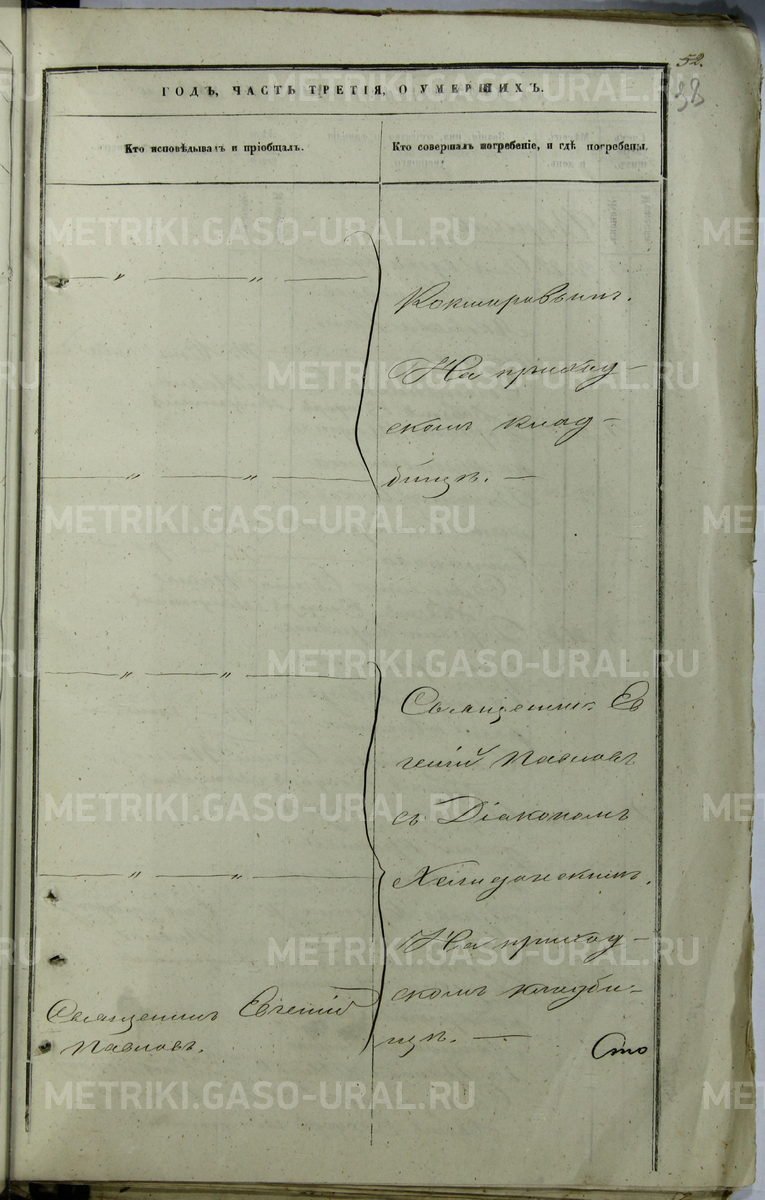 52.
38
ГОДЪ, ЧАСТЬ ТРЕТІЯ, О УМЕРШИХЪ.
Кто исповѣдывалъ и пріобщалъ.
Кто совершалъ погребеніе, и гдѣ погребены.
— „ — „ —
Кокшаровымъ.
На приход-
скомъ клад-
бищѣ. —
— „ — „ —
— „ — „ —
Священник Ев
геній Павловъ
съ Діакономъ
Хелидонскимъ.
На приход-
скомъ кладби-
щѣ. —
— „ — „ —
Священникъ Евгеній
Павловъ.
Сто
METRIKI.GASO-URAL.RU